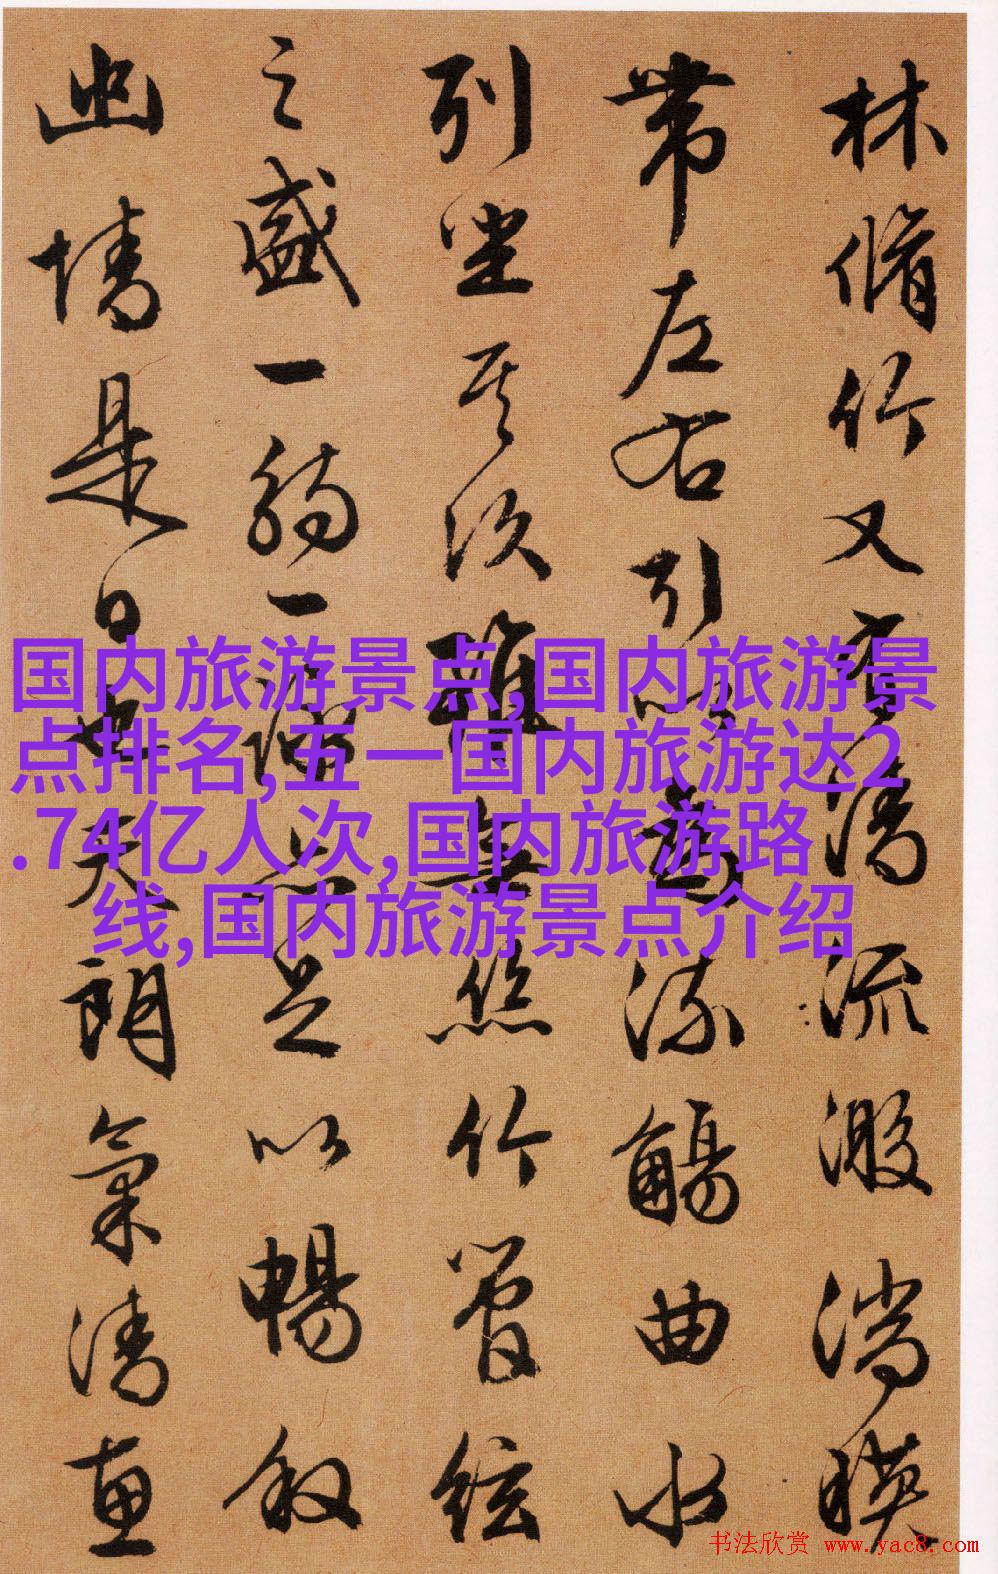 林脩竹又有清流激湍暎
帶左右引以為流觴曲水
列坐其次雖無絲竹管絃
之盛一觴一詠亦足以暢敘
幽情是日也天朗氣清惠
国内旅游景点,国内旅游景
点排名,五一国内旅游达2
.74亿人次,国内旅游路
线,国内旅游景点介绍
书法欣赏 www.yac8.com